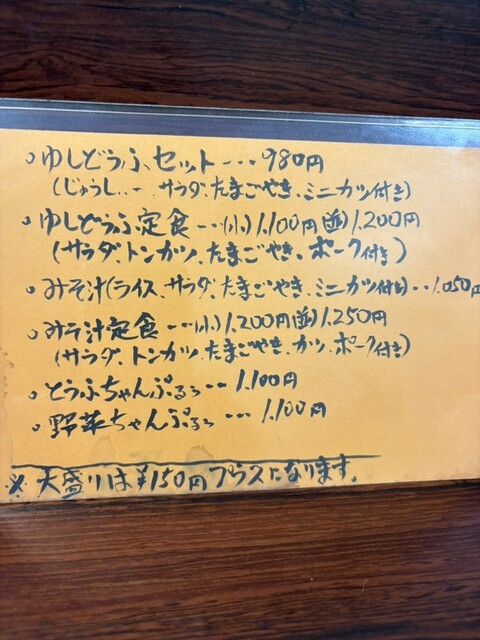 ○ゆしどうふセット・・・980円
(じゅうしぃー サラダ、たまごやき、ミニカツ付き)
○ゆしどうふ定食・・・(小)1,100円(並)1,200円
(サラダ、トンカツ、たまごやき、ポーク付き)
○みそ汁(ライス、サラダ、たまごやき、ミニカツ付き)・・1,050円
○みそ汁定食・・・(小)1,200円(並)1,250円
(サラダ、トンカツ、たまごやき、カツ、ポーク付き)
○とうふちゃんぷるぅ・・・1,100円
○野菜ちゃんぷるぅ・・・1,100円
※大盛りは¥150円プラスになります。